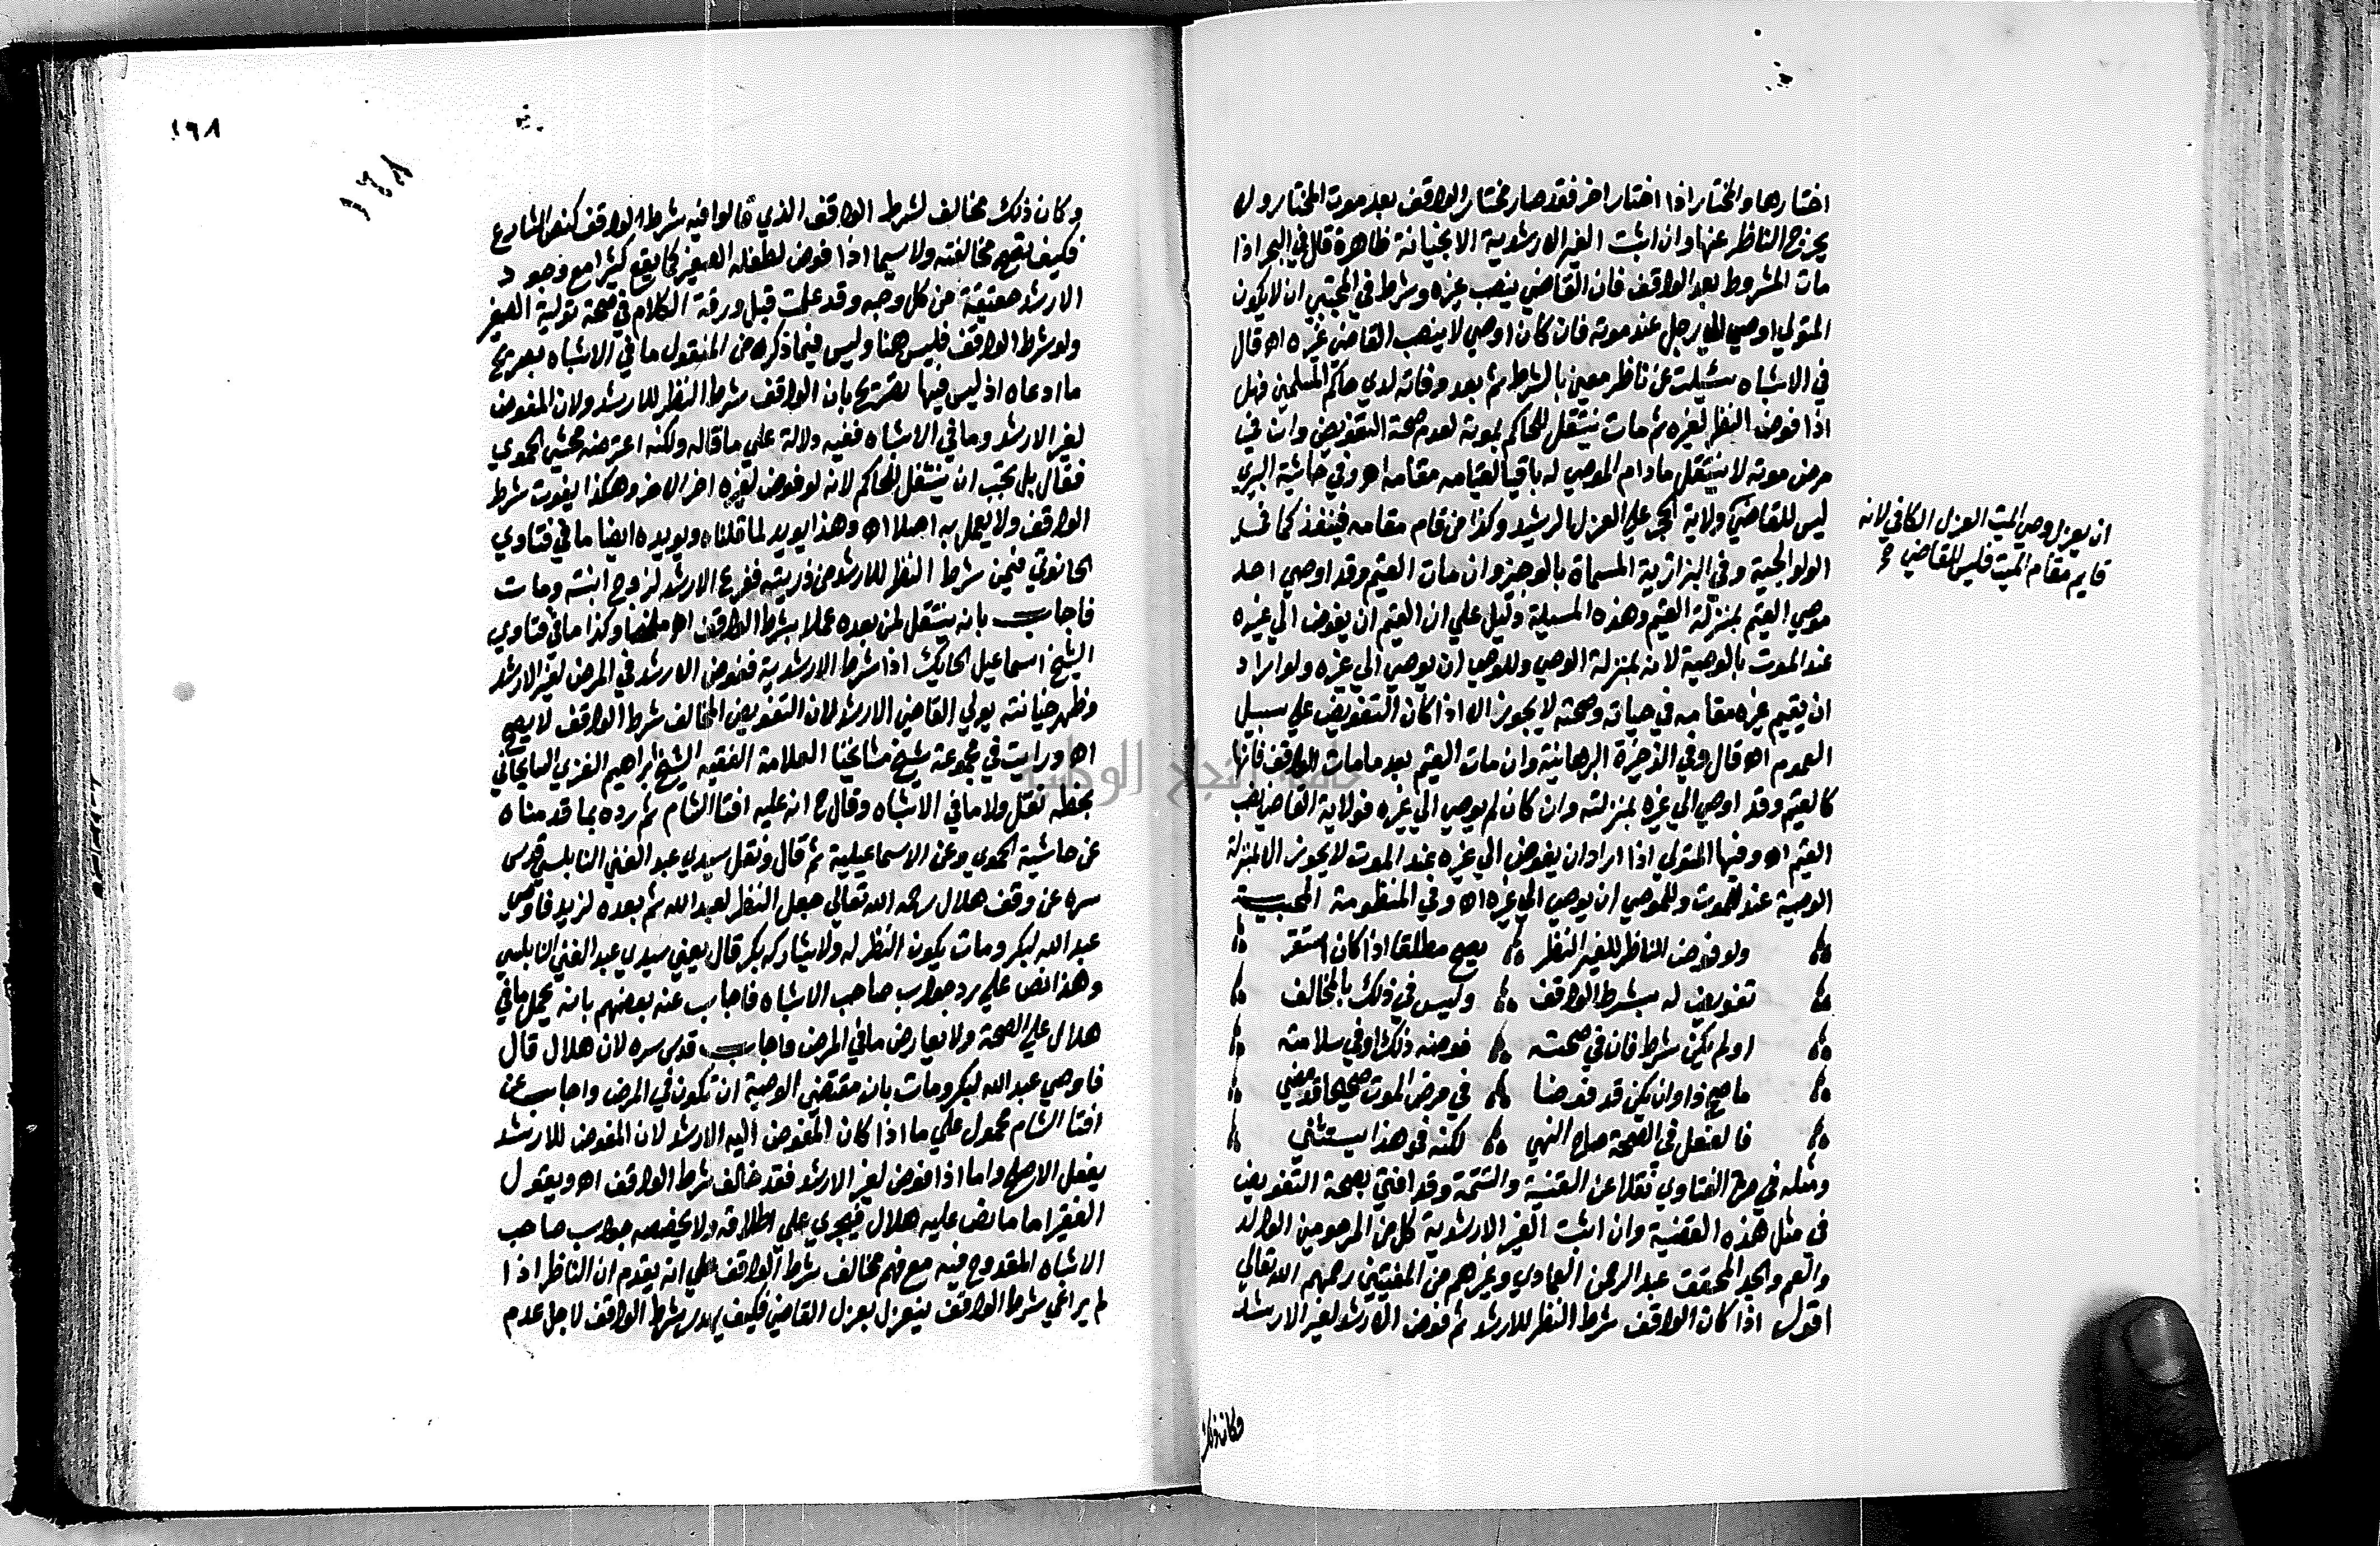 اختارها والمختار اذا اختار اخر فقد صار مختار الواقف بعد موت المختار ولا
يخرج الناظر عنها وان اثبت الغير الارشدية الا بخيانة ظاهرة قال في البحر اذا
مات المشروط بعد الواقف فان القاضي ينصب غيره وشرط في المجتبي ان لا يكون
المتولي اوصي الي رجل عند موته فان كان اوصي لا ينصب القاضي غيره اه قال
في الاشباه سئيلت عن ناظر معين بالشرط ثم بعد وفاته لدي حاكم المسلمين فهل
اذا فوض النظر لغيره ثم مات ينتقل للحاكم بموته لعدم صحة التفويض وان في
مرض موته لا ينتقل مادام الموصي له باقيا لقيامه مقامه اه وفي حاشية البيري
ليس للقاضي ولاية الحجر علي العزل الرشيد وكذا من قام مقامه فينفذ كما في
ان يعزل وصي الميت العدل الكافي لانه
قايم مقام الميت فليس للقاضي
الولوالجية وفي البزازية المسماة بالوجيز وان مات القيم وقد اوصي احد
موصي القيم بمنزلة القيم وهذه المسيلة دليل علي ان القيم ان يفوض الي غيره
عند الموت بالوصية لانه بمنزلة الوصي وللوصي ان يوصي الي غيره ولو اراد
ان يقيم غيره مقامه في حياته وصحته لا يجوز الا اذا كان التفويض علي سبيل
العموم اه قال وفي الذخيرة البرهانية وان مات القيم بعد ما مات الواقف فانها
كالقيم وقد اوصي الي غيره بمنزلته وان كان لم يوصي الي غيره فولاية القاضي نصب
القيم اه وفيها المتولي اذا اراد ان يفوض الي غيره عند الموت لا يجوز الا بمنزلة
الوصية عند الموت وللموصي ان يوصي الي غيره اه وفي المنظومة المحبية
ولو فوض الناظر للغير النظر يصح مطلقا اذا كان استقر
تفويض له بشرط الواقف وليس في ذلك بالمخالف
او لم يكن شرط فان في صحته فوضه ذلك او في سلامته
ما صح ذا وان يكن قد فوضا في مرض الموت صحيحا قد مضي
فالفعل في الصحة صاح النهي لكنه في هذا يستثني
ومثله في صرة الفتاوي نقلا عن القنية والتتمة وقد افتي بصحة التفويض
في مثل هذه القضية وان اثبت الغير الارشدية كل من المرحومين الوالد
والعم والجد المحقق عبد الرحمن العمادي وغيرهم من المفتيين رحمهم الله تعالي
اقول اذا كان الواقف شرط النظر للارشد ثم فوض الارشد لغير الارشد
وكان ذلك
١٦٨
١٦٨
وكان ذلك مخالف لشرط الواقف الذي قالوا فيه شرط الواقف كنص الشارع
فكيف تصح مخالفته ولا سيما اذا فوض لطفله الصغير كما يقع كثيرا مع وجود
الارشد حقيقة من كل وجه وقد علمت قبل ورقة الكلام في صحة تولية الصغير
ولو شرط الواقف فليس هنا وليس فيما ذكره من المنقول ما في الاشباه بصريح
ما ادعاه اذ ليس فيها تصريح بان الواقف شرط النظر للارشد ولان المفوض
لغير الارشد وما في الاشباه ففيه دلالة علي ما قاله ولكنه اعترضه محشيه الحموي
فقال بل يجب ان ينتقل للحاكم لانه لو فوض لغيره اخر الاخر وهكذا يفوت شرط
الواقف ولا يعمل به اصلا اه وهذا يويد لما قلناه ويويده ايضا ما في فتاوي
الحانوتي فيمن شرط النظر للارشد من ذريته ففرغ الارشد لزوج ابنته ومات
فاجاب بانه ينتقل لمن بعده عملا بشرط الواقف اه ملخصا وكذا ما في فتاوي
الشيخ اسماعيل الحايك اذا شرط الارشدية ففوض الارشد في المرض لغير الارشد
وظهر خيانته يولي القاضي الارشد لان التفويض المخالف شرط الواقف لا يصح
اه ورايت في مجموعة شيخ مشايخنا العلامة الفقيه الشيخ ابراهيم الغزي السايحاني
بخطه نقل ولا ما في الاشباه وقال ح انه عليه افتا الشام ثم رده بما قدمناه
عن حاشية الحموي وعن الاسماعيلية ثم قال ونقل سيدي عبد الغني النابلسي قدس
سره عن وقف هلال رحمه الله تعالي جعل النظر لعبد الله ثم بعده لزيد فاوصي
عبد الله لبكر ومات يكون النظر له ولا يشاركه بكر قال يعني سيدي عبد الغني النابلسي
وهذا نص علي رد جواب صاحب الاشباه فاجاب عنه بعضهم بانه يحمل ما في
هلال علي الصحة ولا يعارض ما في المرض واجاب قدس سره لان هلال قال
فاوصي عبد الله لبكر ومات بان مقتضي الوصية ان تكون في المرض واجاب عن
افتا الشام محمول علي ما اذا كان المفوض اليه الارشد لان المفوض للارشد
يفعل الاصلح واما اذا فوض لغير الارشد فقد خالف شرط الواقف اه ويقول
الفقير اما ما نص عليه هلال فيجري علي اطلاقه ولا يخصصه جواب صاحب
الاشباه المقدوح فيه مع فهم مخالف شرط الواقف علي انه يقدم ان الناظر اذا
لم يراعي شرط الواقف ينعزل بعزل القاضي فكيف يهدر شرط الواقف لاجل عدم
جامعة النجاح الوطنية